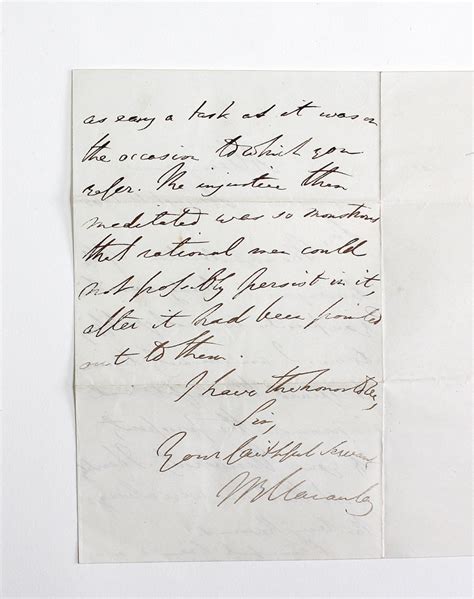 as easy a task as it was on
the occasion to which you
refer. The injustice then
meditated was so monstrous
that rational men could
not possibly persist in it,
after it had been pointed
out to them.
I have the honor to be,
Sir,
Your faithful Servant
TBMacaulay